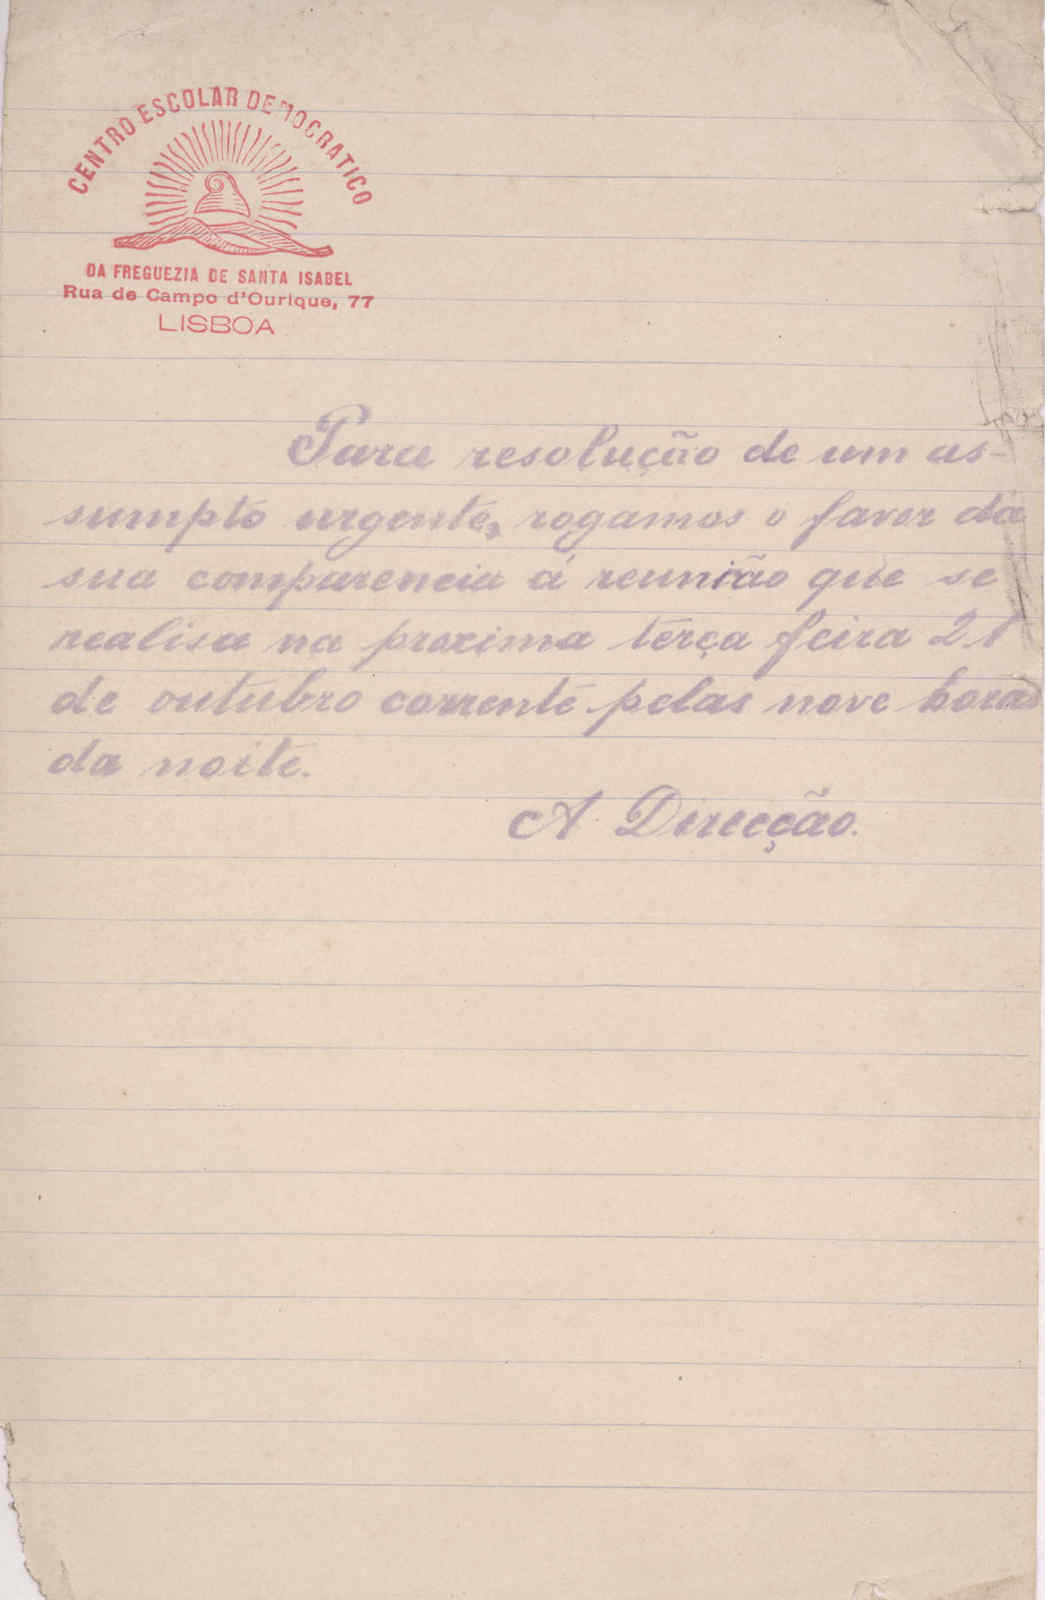 CENTRO ESCOLAR DEMOCRATICO
DA FREGUEZIA DE SANTA ISABEL
Rua de Campo d'Ourique, 77
LISBOA
Para resolução de um as-
sumpto urgente, rogamos o favor da
sua comparencia á reunião que se
realisa na proxima terça feira 21
de outubro corrente pelas nove horas
da noite.
A Direcção.